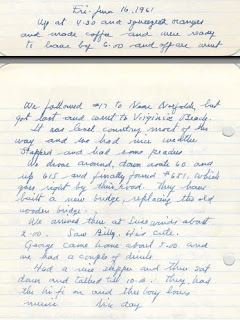 Fri. June 16, 1961
Up at 4:30 and squeezed oranges
and made coffee and were ready
to leave by 6:00 and off we went
We followed #17 to Norfolk, but
got lost and went to Virginia Beach.
It was level country most of the
way and we had nice weather
Stopped and had some peaches
We drove around, down route 60 and
up 615 and finally found #651, which
goes right by their road. They have
built a new bridge, replacing the old
wooden bridge.
We arrived there at about
2:00. Saw Billy. He's cute.
George came home about 5:00 and
we had a couple of drinks
Had a nice supper and then sat
down and talked till 10:00. They had
the hi fi on and the boy hours
music. Nice day